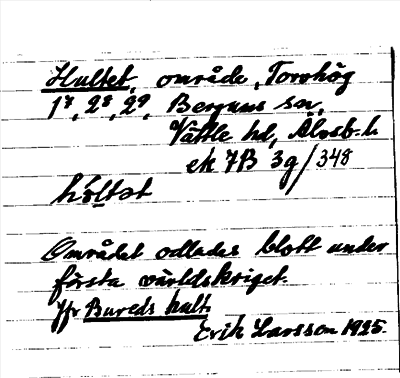 Hultet, område, Torrhög
1⁷, 2⁸, 2⁹, Bergums sn,
Vättle hd, Älvsb. l.
ek 7B 3g/348
hóltət
Området odlades blott under
första världskriget.
Jfr Bureds hult.
Erik Larsson 1925.